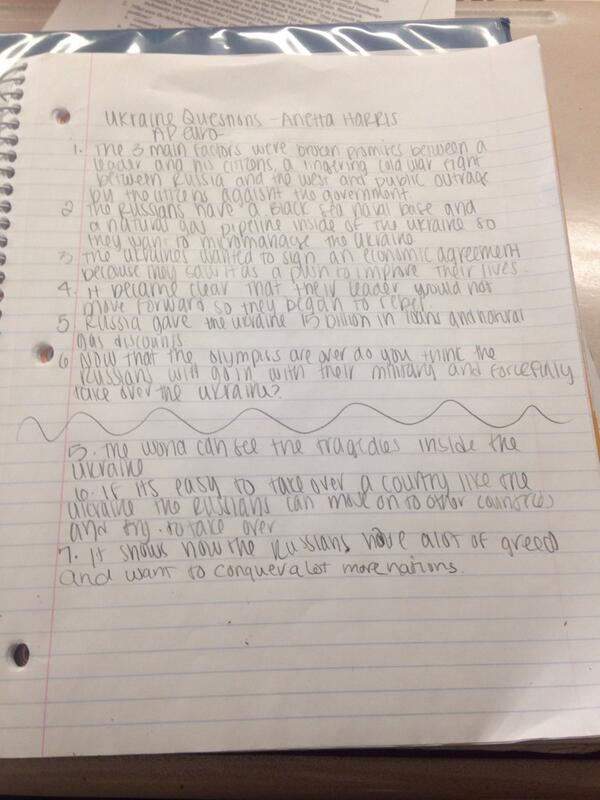 Ukraine Questions - Anetta Harris
AP euro-
1. The 3 main factors were broken promises between a
leader and his citizens, a lingering cold war fight
between Russia and the west and public outrage
by the citizens against the government.
2 The Russians have a Black Sea naval base and
a natural gas pipeline inside of the Ukraine so
they want to micromanage the Ukraine.
3 The Ukraines wanted to sign an economic agreement
because they saw it as a push to improve their lives.
4. It became clear that their leader would not
move forward so they began to rebel.
5 Russia gave the Ukraine 15 billion in loans and natural
gas discounts
6 Now that the Olympics are over do you think the
Russians will go in with their military and forcefully
take over the Ukraine?
5. The world can see the tragedies inside the
Ukraine
6. If its easy to take over a country like the
Ukraine the Russians can move on to other countries
and try to take over
7. It shows how the Russians have alot of greed
and want to conquer alot more nations.